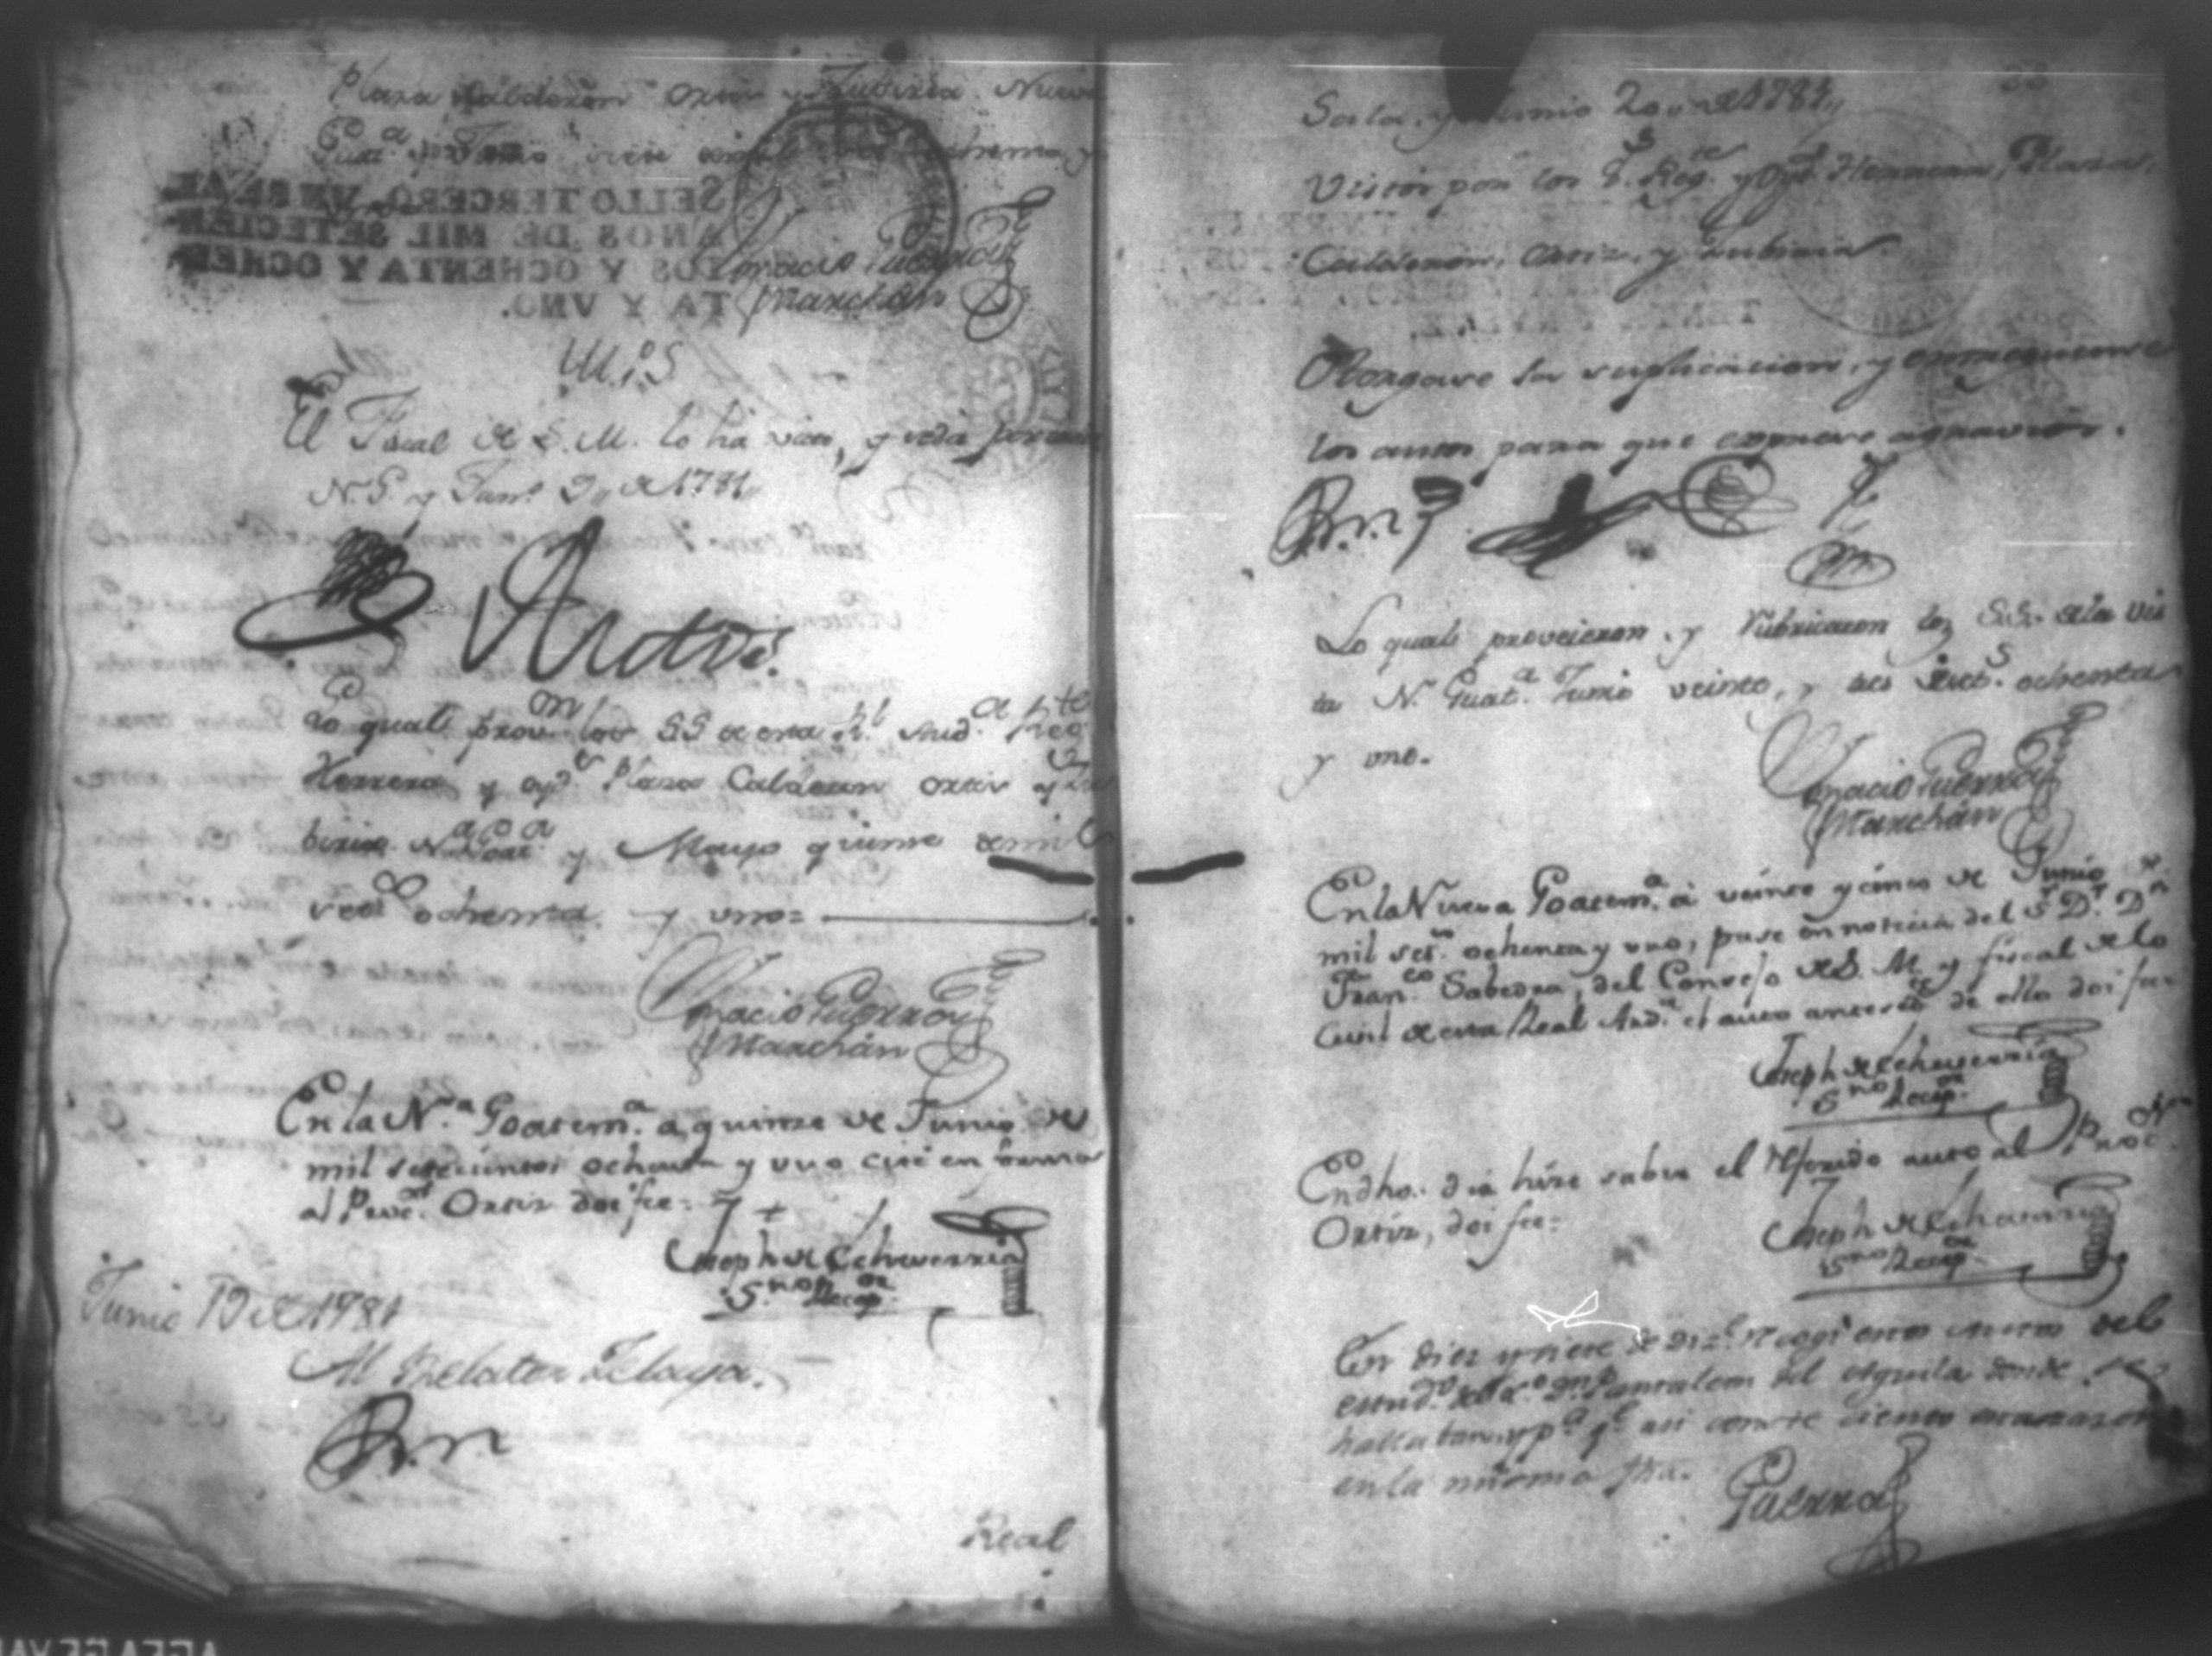 Plaza Calderon Ortiz y Zubiria. Nueva
Goat.ª y Junio
SELLO TERCERO, VN REAL,
AÑOS DE MIL SETECIEN-
TOS Y OCHENTA Y OCHEN-
TA Y VNO.
Ignacio Guerra
Marchán
M.P.S.
El Fiscal de S. M. lo ha visto, y
N. G. y Jun.º 9,, de 1781,,
Autos.
Lo qual prov.on los SS de esta R.l Aud.ª Reg.te
Herrera y oyd.s Plaza Calderon Ortiz y Zu
biria. N.ª Goat.ª y Mayo quinse de mil
set.os ochenta y uno=
Ignacio Guerra
Marchán
En la N.ª Goatem.ª a quinze de Junio de
mil setecientos ochenta y uno cité en forma
al Proc.or Ortiz doi fee=
Joseph de Echeverria
S.no Recep.or
Junio 19 de 1781
Al Relator Zelaya.
Real
Sala, y Junio 20,, de 1781,,
Vistos por los S.S Reg.te y Oyd.s Herrera, Plaza,
Calderon, Ortiz, y Zubiria.
Otorgase la suplicacion, y entreguense
los autos para que exprese agravios.
Lo qual proveieron, y rubricaron los S.S. de la vis
ta N. Guat.ª Junio veinte, y set.s ochenta
y uno.
Ignacio Guerra
Marchán
En la Nueva Goatem.ª a veinte y cinco de Junio de
mil set.os ochenta y uno, puse en noticia del S.r D.r D.n
Fran.co Sabedra, del Consejo de S. M. y fiscal de lo
Civil de esta Real Aud.ª el auto anteced.te de ello doi fee=
Joseph de Echeverria
S.no Recep.or
En dho. dia hize saber el referido auto al Proc.or
Ortiz, doi fee=
Joseph de Echeverria
S.no Recep.or
En diez y siete de diz.e recogi estos autos del
estud.o del D.n Pantaleon del Aguila donde se
hallaban, y p.ª q.e asi conste siento esta razon
en la misma fha.
Guerra